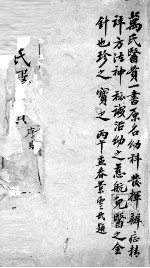 萬氏醫貫一書原名幼科發揮辨症精
祥方法神秘誠治幼之慈航兒醫之金
針也珍之寶之 丙午孟春業雲氏題
氏